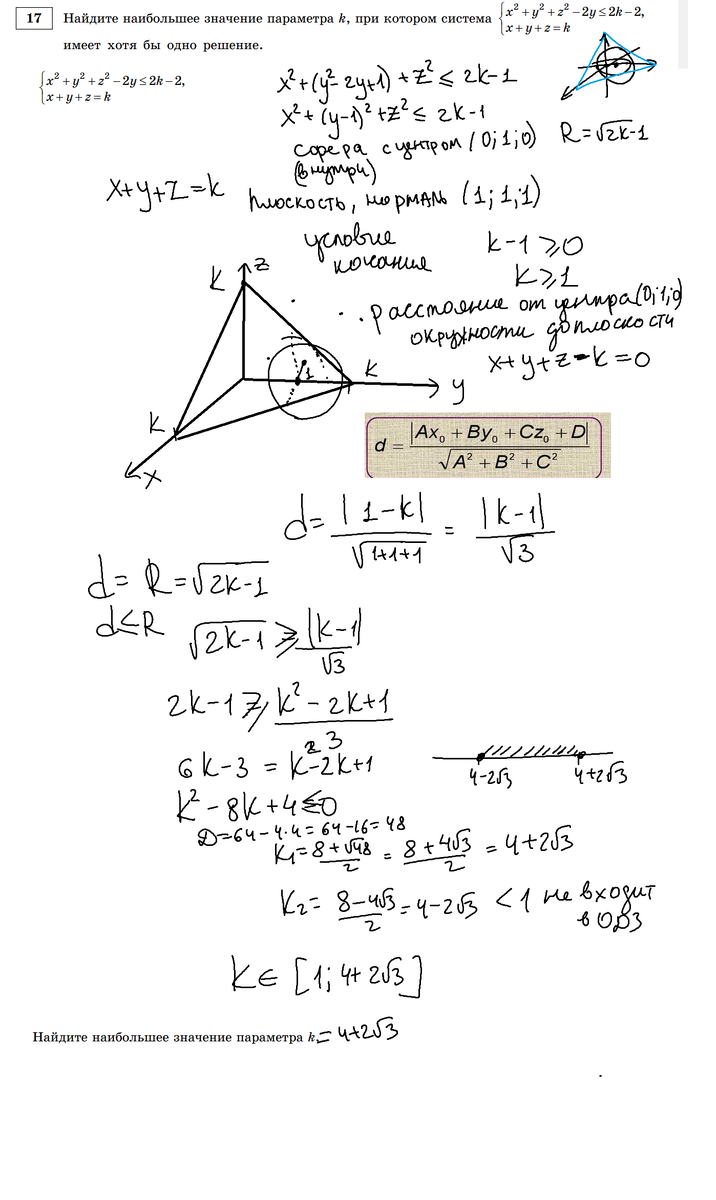 17 Найдите наибольшее значение параметра k, при котором система { x² + y² + z² − 2y ≤ 2k − 2,
x + y + z = k
имеет хотя бы одно решение.
{ x² + y² + z² − 2y ≤ 2k − 2,
x + y + z = k
x² + (y² − 2y + 1) + z² ≤ 2k − 1
x² + (y − 1)² + z² ≤ 2k − 1
сфера с центром (0; 1; 0) R = √2k − 1
(внутри)
x + y + z = k плоскость, нормаль (1; 1; 1)
условие
косания
k − 1 ≥ 0
k ≥ 1
расстояние от центра (0; 1; 0)
окружности до плоскости
x + y + z − k = 0
k z
1 k y
k
x
d = |Ax₀ + By₀ + Cz₀ + D| / √A² + B² + C²
d = |1 − k| / √1+1+1 = |k − 1| / √3
d = R = √2k − 1
d ≤ R √2k − 1 ≥ |k − 1| / √3
2k − 1 ≥ k² − 2k + 1 / 3
6k − 3 = k² − 2k + 1
4 − 2√3 4 + 2√3
k² − 8k + 4 ≤ 0
D = 64 − 4·4 = 64 − 16 = 48
k₁ = 8 + √48 / 2 = 8 + 4√3 / 2 = 4 + 2√3
k₂ = 8 − 4√3 / 2 = 4 − 2√3 < 1 не входит
в ОДЗ
k ∈ [1; 4 + 2√3]
Найдите наибольшее значение параметра k = 4 + 2√3